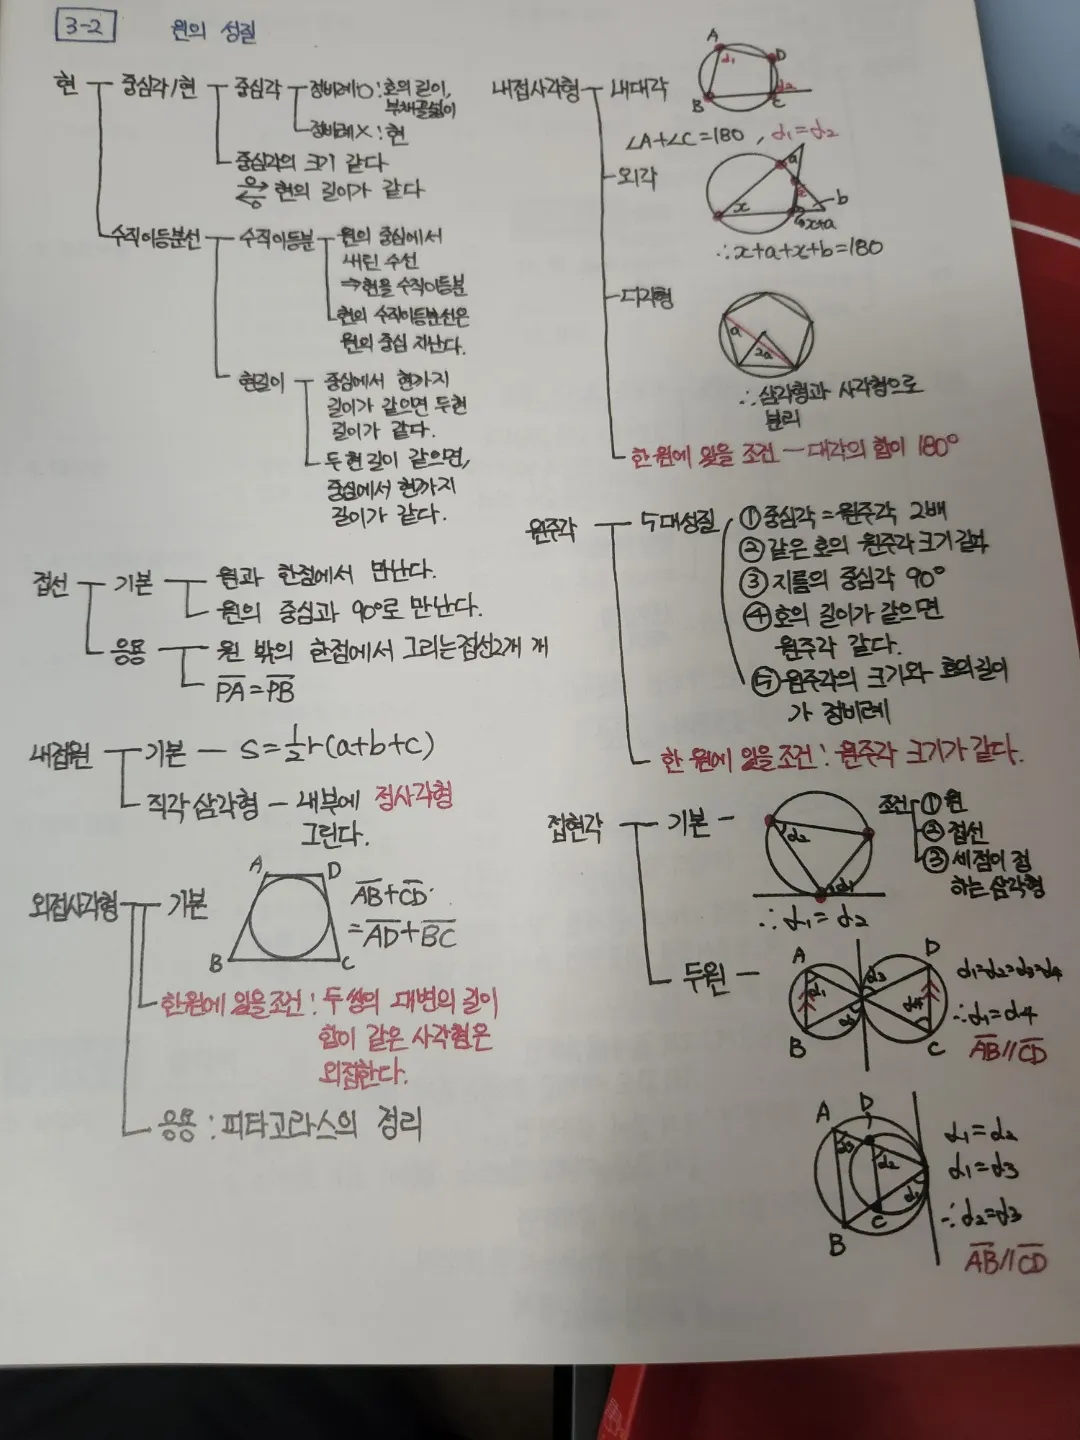 3-2 원의 성질
현 중심각/현 중심각 정비례O : 호의 길이,
부채꼴넓이
정비례X : 현
중심각의 크기 같다
현의 길이가 같다
수직이등분선 수직이등분 원의 중심에서
내린 수선
⇒현을 수직이등분
현의 수직이등분선은
원의 중심 지난다.
현길이 중심에서 현까지
길이가 같으면 두현
길이가 같다.
두 현 길이 같으면,
중심에서 현까지
길이가 같다.
접선 기본 원과 한점에서 만난다.
원의 중심과 90°로 만난다.
응용 원 밖의 한점에서 그리는 접선2개
PA=PB
내접원 기본 S=½r(a+b+c)
직각 삼각형 - 내부에 정사각형
그린다.
외접사각형 기본
A D
B C
AB+CD
=AD+BC
한원에 있을 조건 : 두 쌍의 대변의 길이
합이 같은 사각형은
외접한다.
응용 : 피타고라스의 정리
내접사각형 내대각
A D
α₁ α₂
B C
∠A+∠C=180 , α₁=α₂
외각
a
x b
x+a
∴x+a+x+b=180
다각형
a
2a
∴삼각형과 사각형으로
분리
한 원에 있을 조건 - 대각의 합이 180°
원주각 5대성질 ①중심각=원주각 2배
②같은 호의 원주각 크기 같다
③지름의 중심각 90°
④호의 길이가 같으면
원주각 같다.
⑤원주각의 크기와 호의길이
가 정비례
한 원에 있을 조건 : 원주각 크기가 같다.
접현각 기본 -
α₂
α₁
조건 ①원
②접선
③세점이 접
하는 삼각형
∴α₁=α₂
두원 -
A D
α₁ α₂ α₃ α₄
B C
α₁=α₂=α₃=α₄
∴α₁=α₄
AB//CD
A D
α₃ α₂ α₁
C
B
α₁=α₂
α₁=α₃
∴α₂=α₃
AB//CD